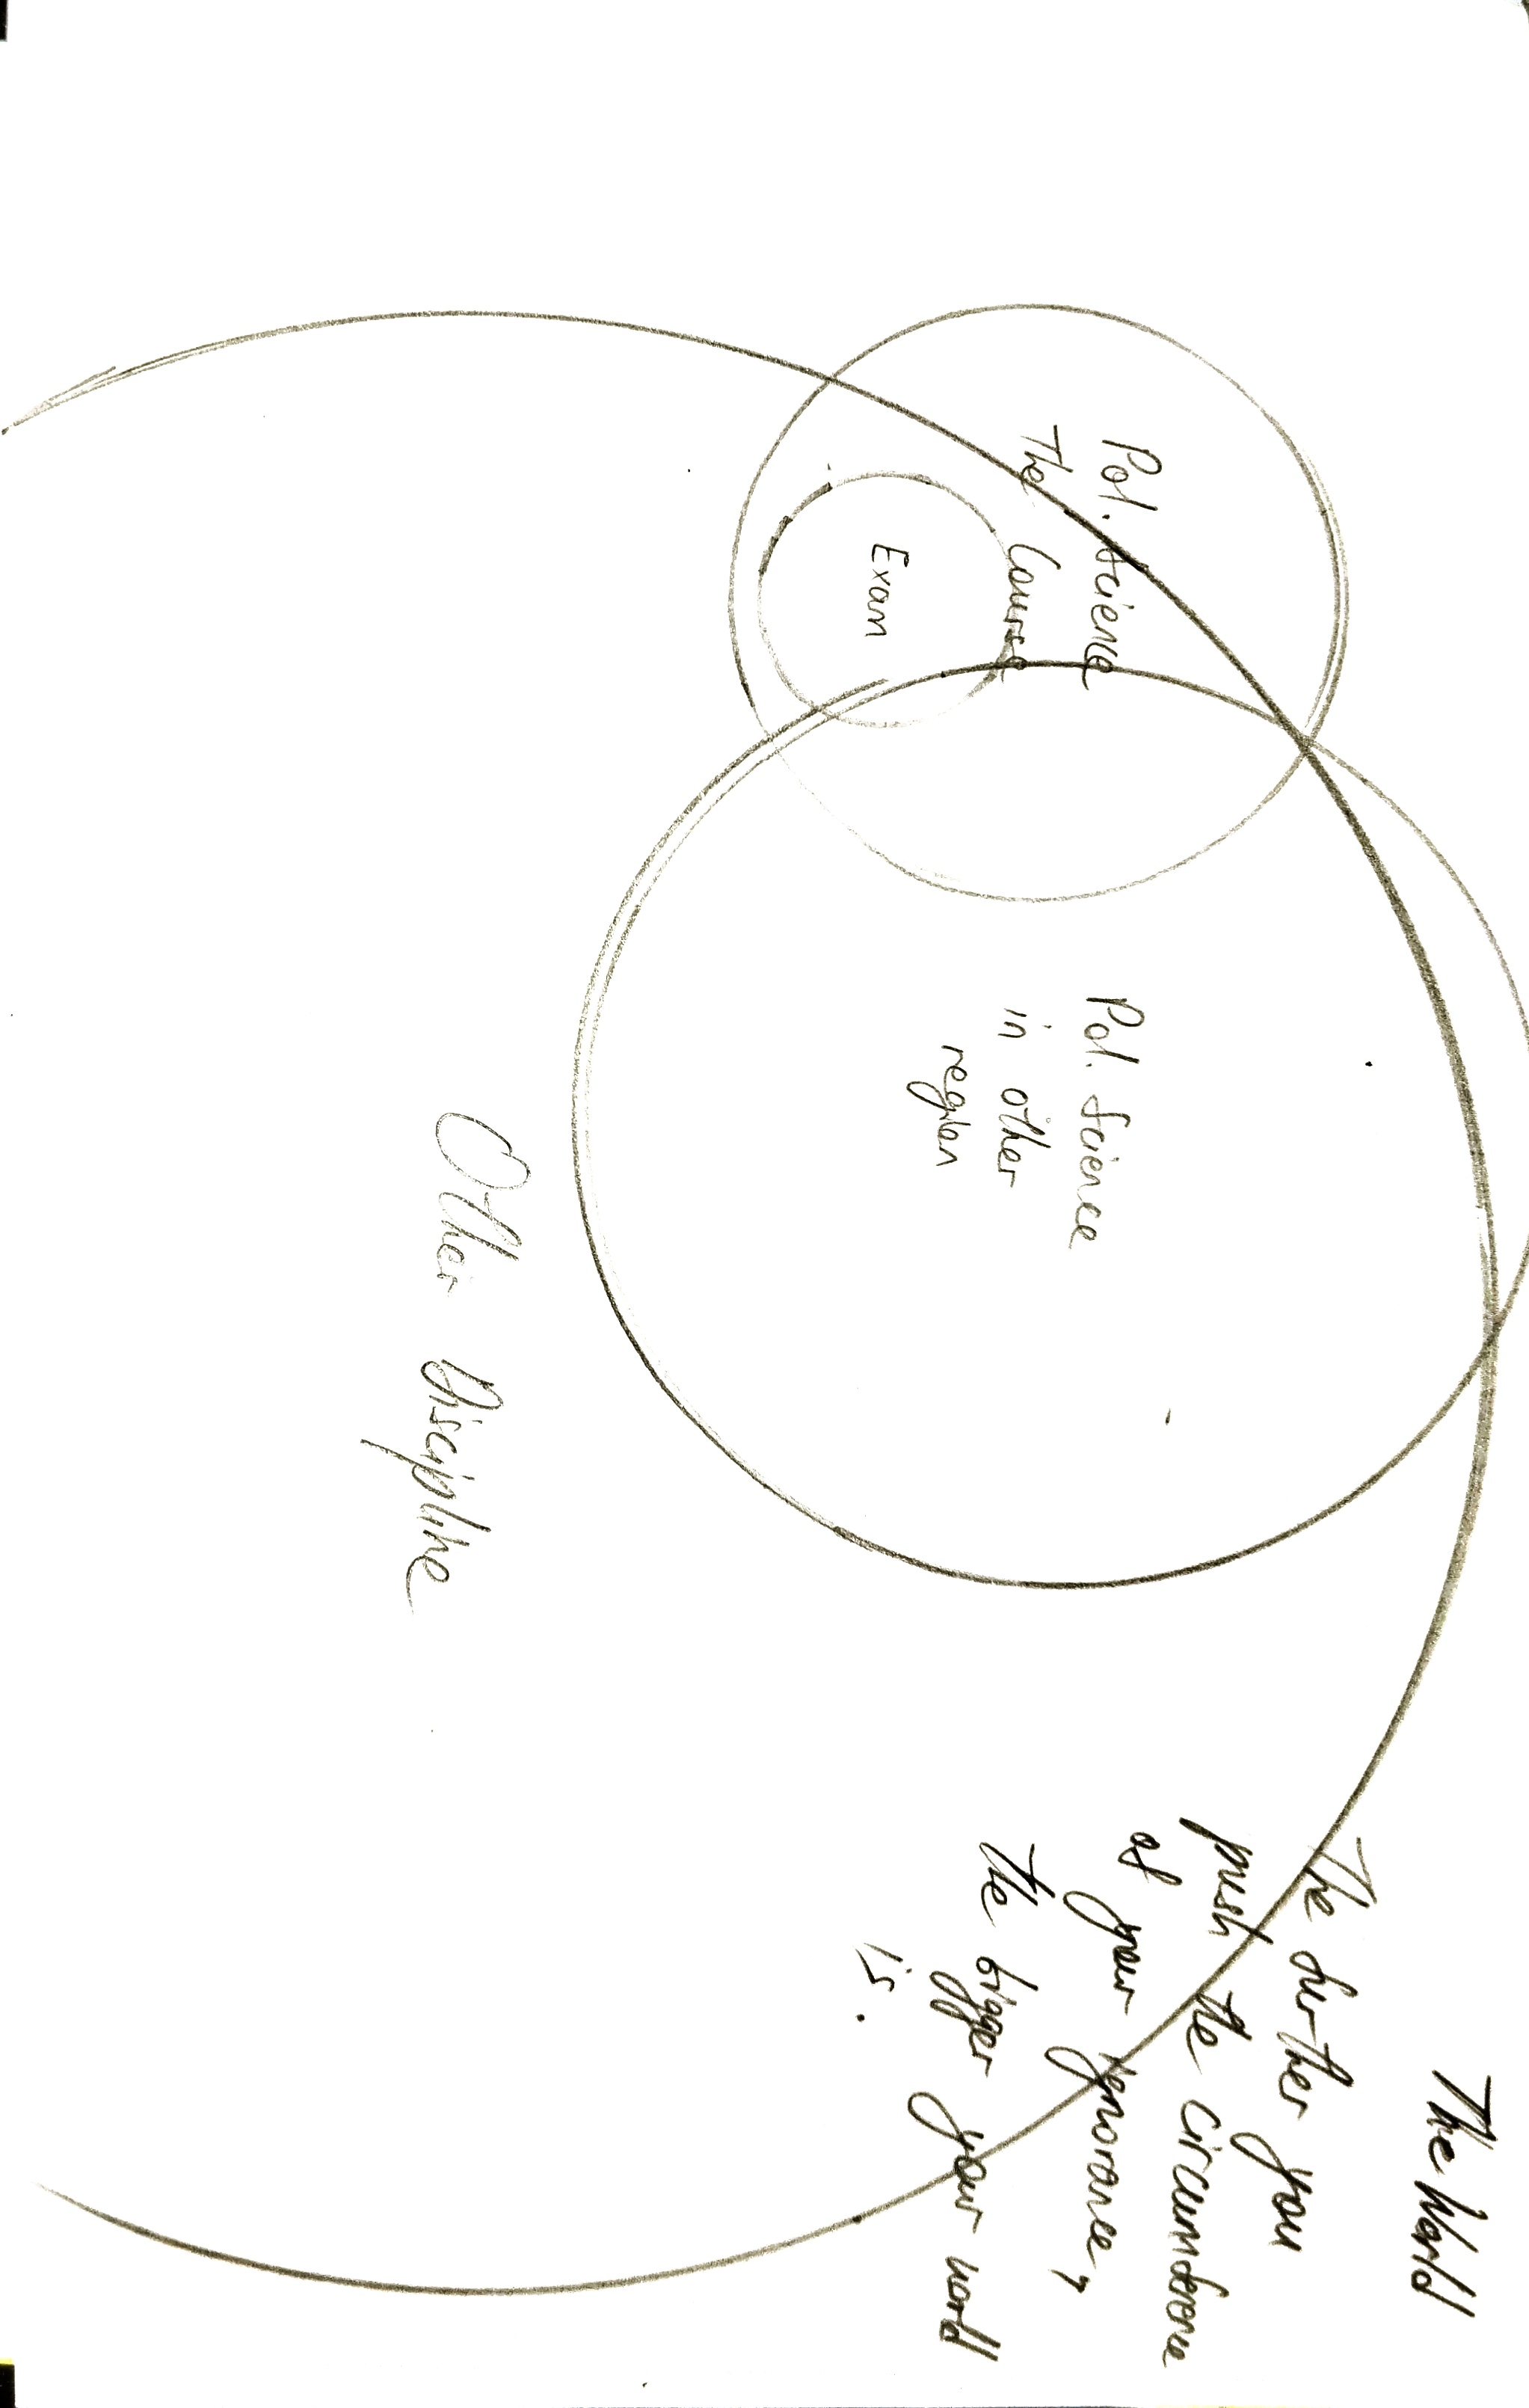 The World
The further you
push the circumference
of your ignorance,
the bigger your world
is.
Pol. Science
The Course
Exam
Pol. Science
in other
region
Other Discipline